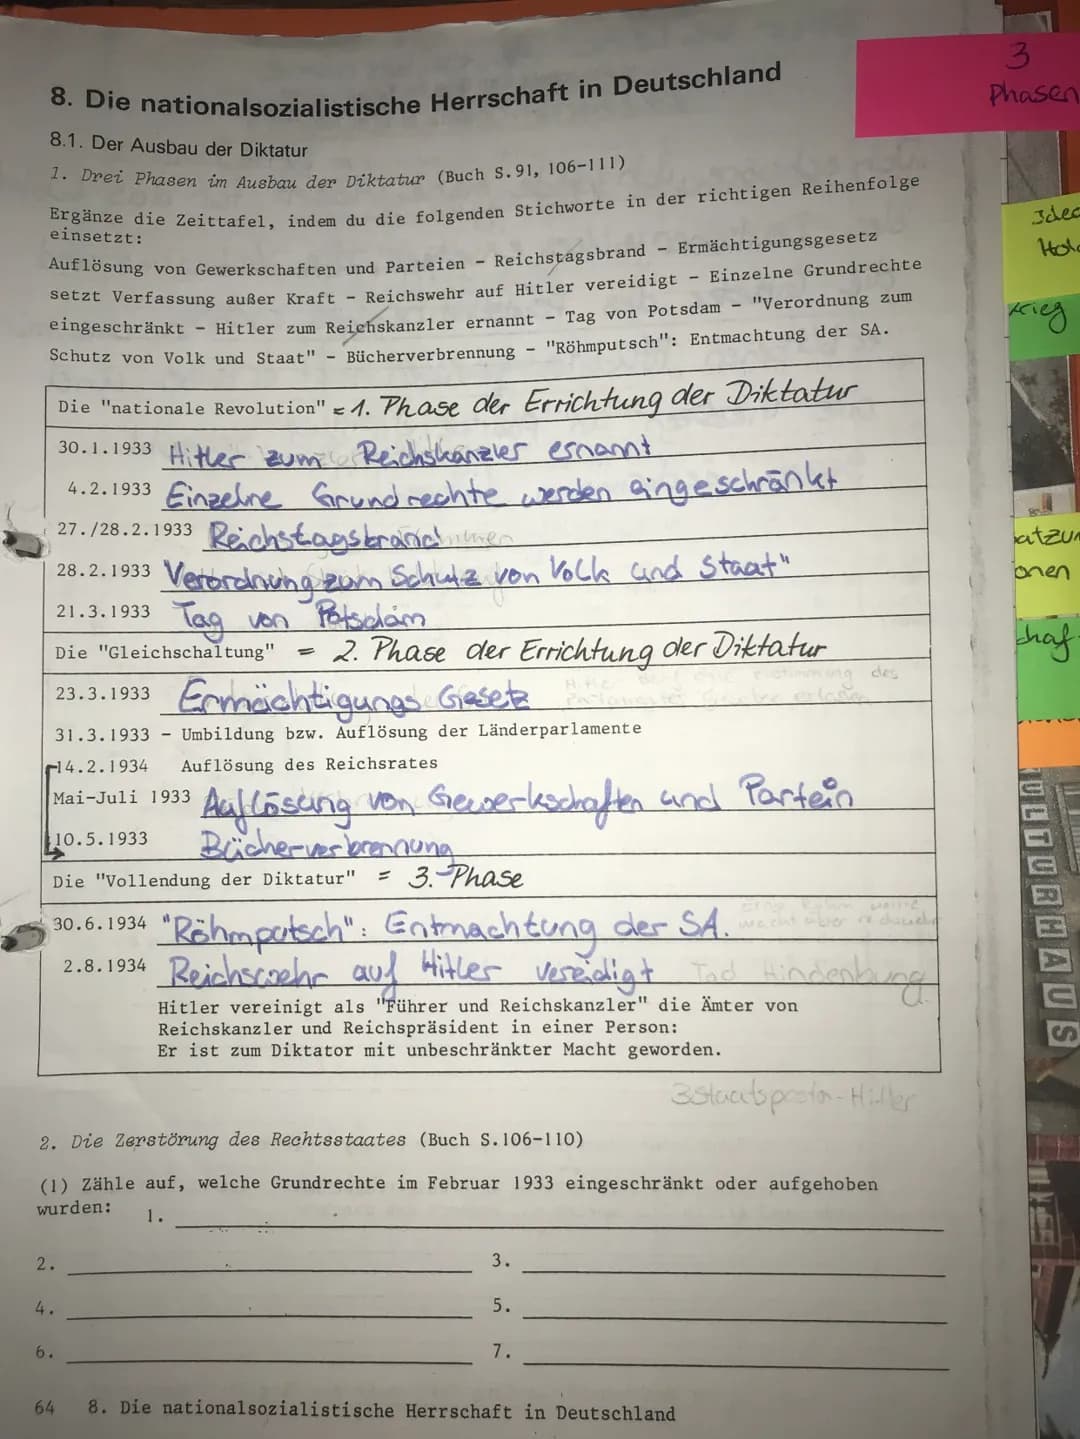 3
Phasen
8. Die nationalsozialistische Herrschaft in Deutschland
8.1. Der Ausbau der Diktatur
1. Drei Phasen im Ausbau der Diktatur (Buch S.91, 106-111)
Ergänze die Zeittafel, indem du die folgenden Stichworte in der richtigen Reihenfolge
einsetzt:
Auflösung von Gewerkschaften und Parteien - Reichstagsbrand - Ermächtigungsgesetz
setzt Verfassung außer Kraft - Reichswehr auf Hitler vereidigt - Einzelne Grundrechte
eingeschränkt - Hitler zum Reichskanzler ernannt - Tag von Potsdam - "Verordnung zum
Schutz von Volk und Staat" - Bücherverbrennung - "Röhmputsch": Entmachtung der SA.
Die "nationale Revolution" = 1. Phase der Errichtung der Diktatur
30.1.1933 Hitler zum Reichskanzler ernannt
4.2.1933 Einzelne Grundrechte werden eingeschränkt
27./28.2.1933 Reichstagsbrand
28.2.1933 Verordnung zum Schutz von Volk und Staat"
21.3.1933 Tag von Potsdam
Die "Gleichschaltung" = 2. Phase der Errichtung der Diktatur
23.3.1933 Ermächtigungs Gesetz
31.3.1933 - Umbildung bzw. Auflösung der Länderparlamente
14.2.1934 Auflösung des Reichsrates
Mai-Juli 1933 Auflösung von Gewerkschaften und Partein
10.5.1933 Bücherverbrennung
Die "Vollendung der Diktatur" = 3. Phase
30.6.1934 "Röhmputsch": Entmachtung der SA.
2.8.1934 Reichswehr auf Hitler vereidigt Tod Hindenburg
Hitler vereinigt als "Führer und Reichskanzler" die Ämter von
Reichskanzler und Reichspräsident in einer Person:
Er ist zum Diktator mit unbeschränkter Macht geworden.
2. Die Zerstörung des Rechtsstaates (Buch S.106-110)
(1) Zähle auf, welche Grundrechte im Februar 1933 eingeschränkt oder aufgehoben
wurden: 1.
2. 3.
4. 5.
6. 7.
64 8. Die nationalsozialistische Herrschaft in Deutschland
Krieg
KULTURHAUS